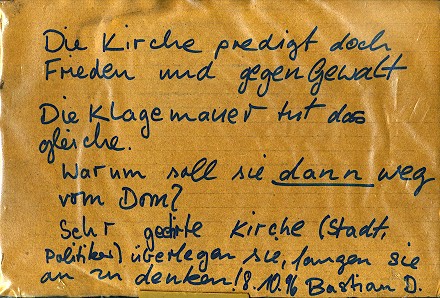 Die Kirche predigt doch
Frieden und gegen Gewalt
Die Klagemauer tut das
gleiche.
Warum soll sie dann weg
vom Dom?
Sehr geehrte Kirche (Stadt,
Politiker) überlegen sie, fangen sie
an zu denken! 8.10.96 Bastian D.